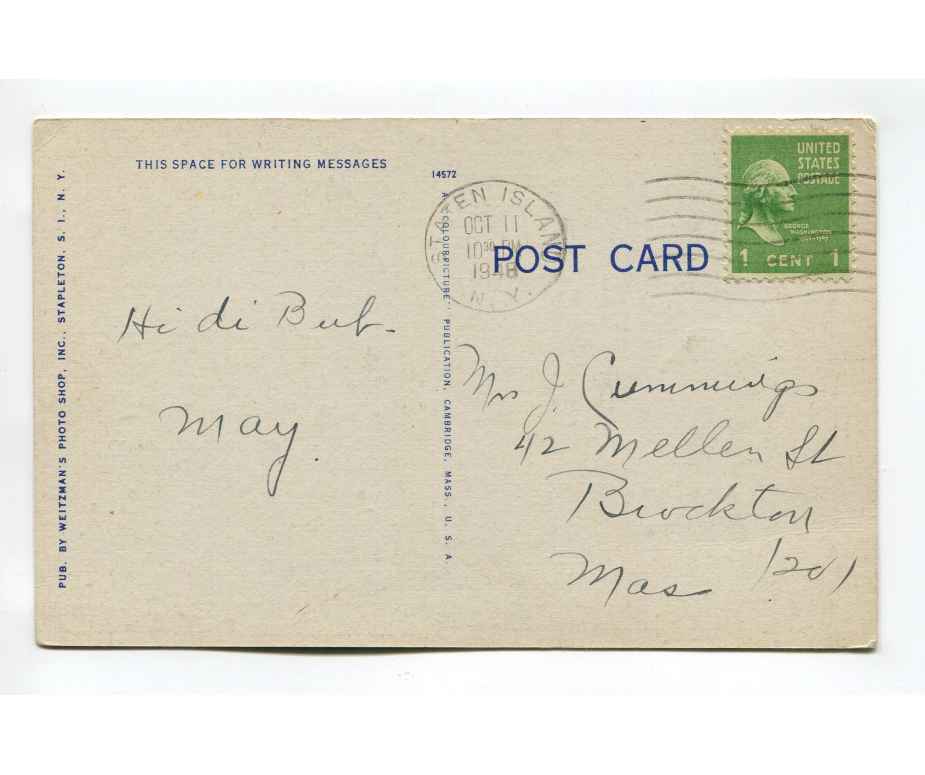 THIS SPACE FOR WRITING MESSAGES
PUB. BY WEITZMAN'S PHOTO SHOP, INC., STAPLETON, S. I., N. Y.
Hi di Bub-
May.
14572
A "COLOURPICTURE" PUBLICATION, CAMBRIDGE, MASS., U. S. A
STATEN ISLAND
OCT 11
10 30 PM
1948
N.Y.
POST CARD
UNITED
STATES
POSTAGE
GEORGE
WASHINGTON
1 CENT 1
Mrs J. Cummings
42 Mellen St
Brockton
Mas